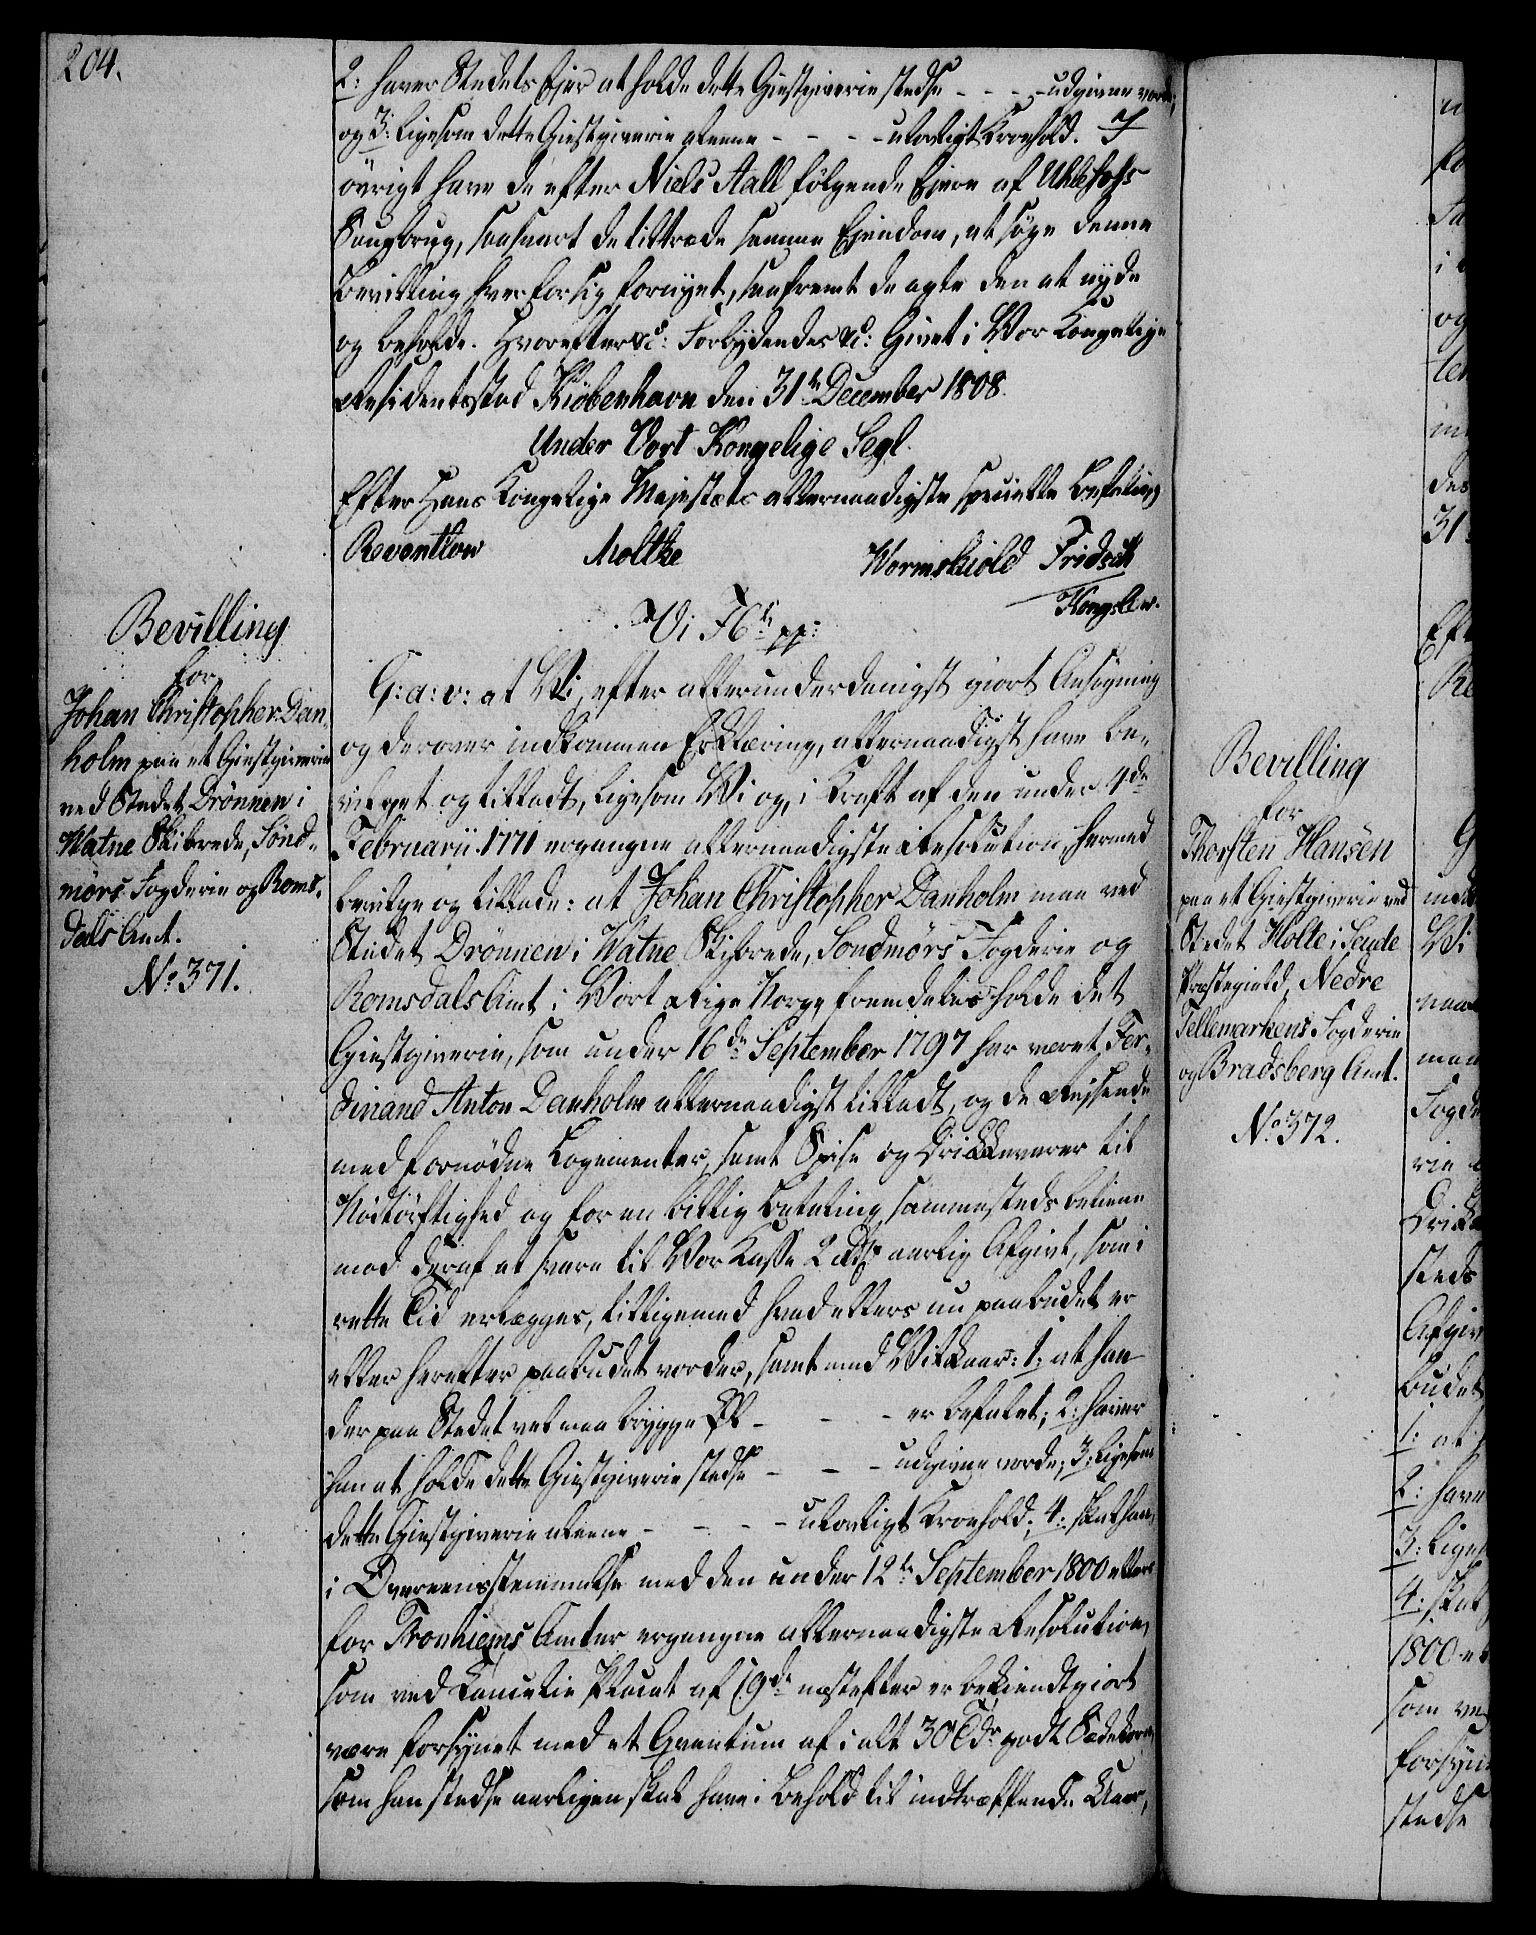 204.
2: haver Stedets Ejer at holde dette Giestgiverie stedse - - - udgivne vorde,
og 3: ligesom dette Giestgiverie alene - - - - ulovligt Kroehold. I
övrigt have de efter Niels Aall fölgende Ejere af Uhlefoss
Saugbrug, saasnart de tiltræde samme Ejendom, at söge denne
Bevilling hver for sig fornyet, saafremt de agte den at nyde
og beholde. Hvorefter &c: Forbydendes &c: Givet i Vor Kongelige
Residentsstad Kiöbenhavn den 31te December 1808.
Under Vort Kongelige Segl.
Efter Hans Kongelige Majestæts allernaadigste specielle Befaling
Reventlow Moltke Wormskiold Fridsch
Kongslew.
Bevilling
for
Johan Christopher Dan-
holm paa et Giestgiverie
ved Stedet Drönnen i
Watne Skibrede, Sönd-
mörs Fogderie og Roms-
dals Amt.
No 371.
Vi F 6te pp:
G: a: v: at Vi, efter allerunderdanigst giort Ansögning
og derover indkommen Erklæring, allernaadigst have be-
vilget og tilladt, ligesom Vi og, i Kraft af den under 4de
Februarii 1771 ergangne allernaadigste Resolution, hermed
bevilge og tillade: at Johan Christopher Danholm maa ved
Stedet Drönnen i Watne Skibrede, Söndmörs Fogderie og
Romsdals Amt i Vort Rige Norge fremdeles holde det
Giestgiverie, som under 16de September 1797 har været Fer-
dinand Anton Danholm allernaadigst tilladt, og de Rejsende
med fornödne Logementer, samt Spise og Drikkevarer til
Nödtörftighed og for en billig Betaling sammesteds betiene
mod deraf at svare til Vor Kasse 2 Rdlr aarlig Afgivt, som i
rette Tid erlægges, tilligemed hvad ellers nu paabudet er
eller herefter paabudet vorder, samt med Vilkaar: 1: at han
der paa Stedet vel maa brygge Öl - - - er befalet; 2: haver
han at holde dette Giestgiverie stedse - - - udgivne vorde; 3: ligesom
dette Giestgiverie alene - - - - ulovligt Kroehold; 4: skal han,
i Overeensstemmelse med den under 12te September 1800 ellers
for Tronhiems Amter ergangne allernaadigste Resolution,
som ved Cancelie Placat af 19de næstefter er bekiendtgiort
være forsynet med et Qvantum af i alt 30 Tdr godt Sædekorn,
som han stedse aarligen skal have i Behold til indtræffende Uaar,
Bevilling
for
Thorsten Hansen
paa et Giestgiverie ved
Stedet Holte i Seude
Præstegield, Nedre
Tellemarkens Fogderie
og Bradsberg Amt.
No 372.